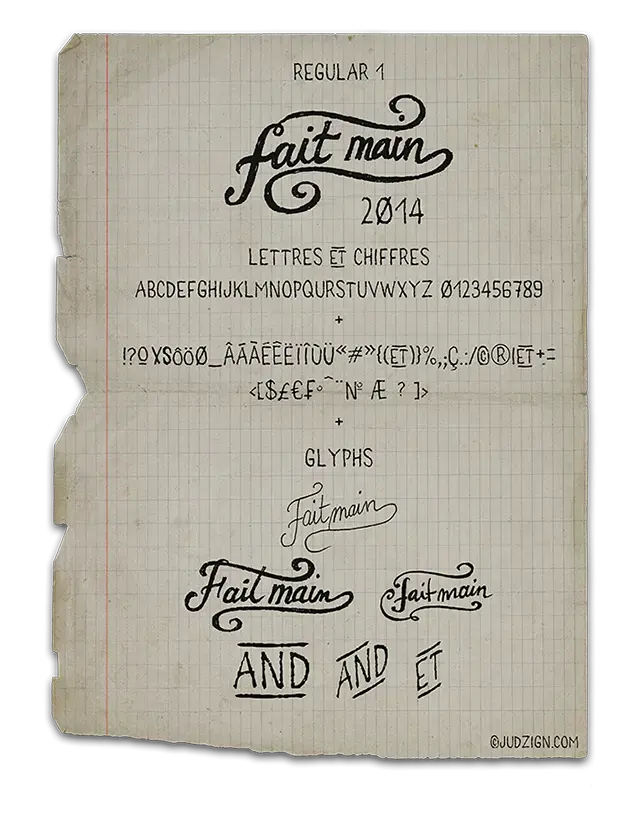 REGULAR 1
fait main
2Ø14
LETTRES ET CHIFFRES
ABCDEFGHIJKLMNOPQURSTUVWXYZ Ø123456789
+
!?O XSôöØ_ÂÄÁÀÉÊËÏÎÛÜ«#»{(ET)}%,;Ç.:/©®|ET+-=
<[$£€₣°^¨№ Æ ? ]>
+
GLYPHS
Fait main
Fait main fait main
AND AND ET
©JUDZIGN.COM